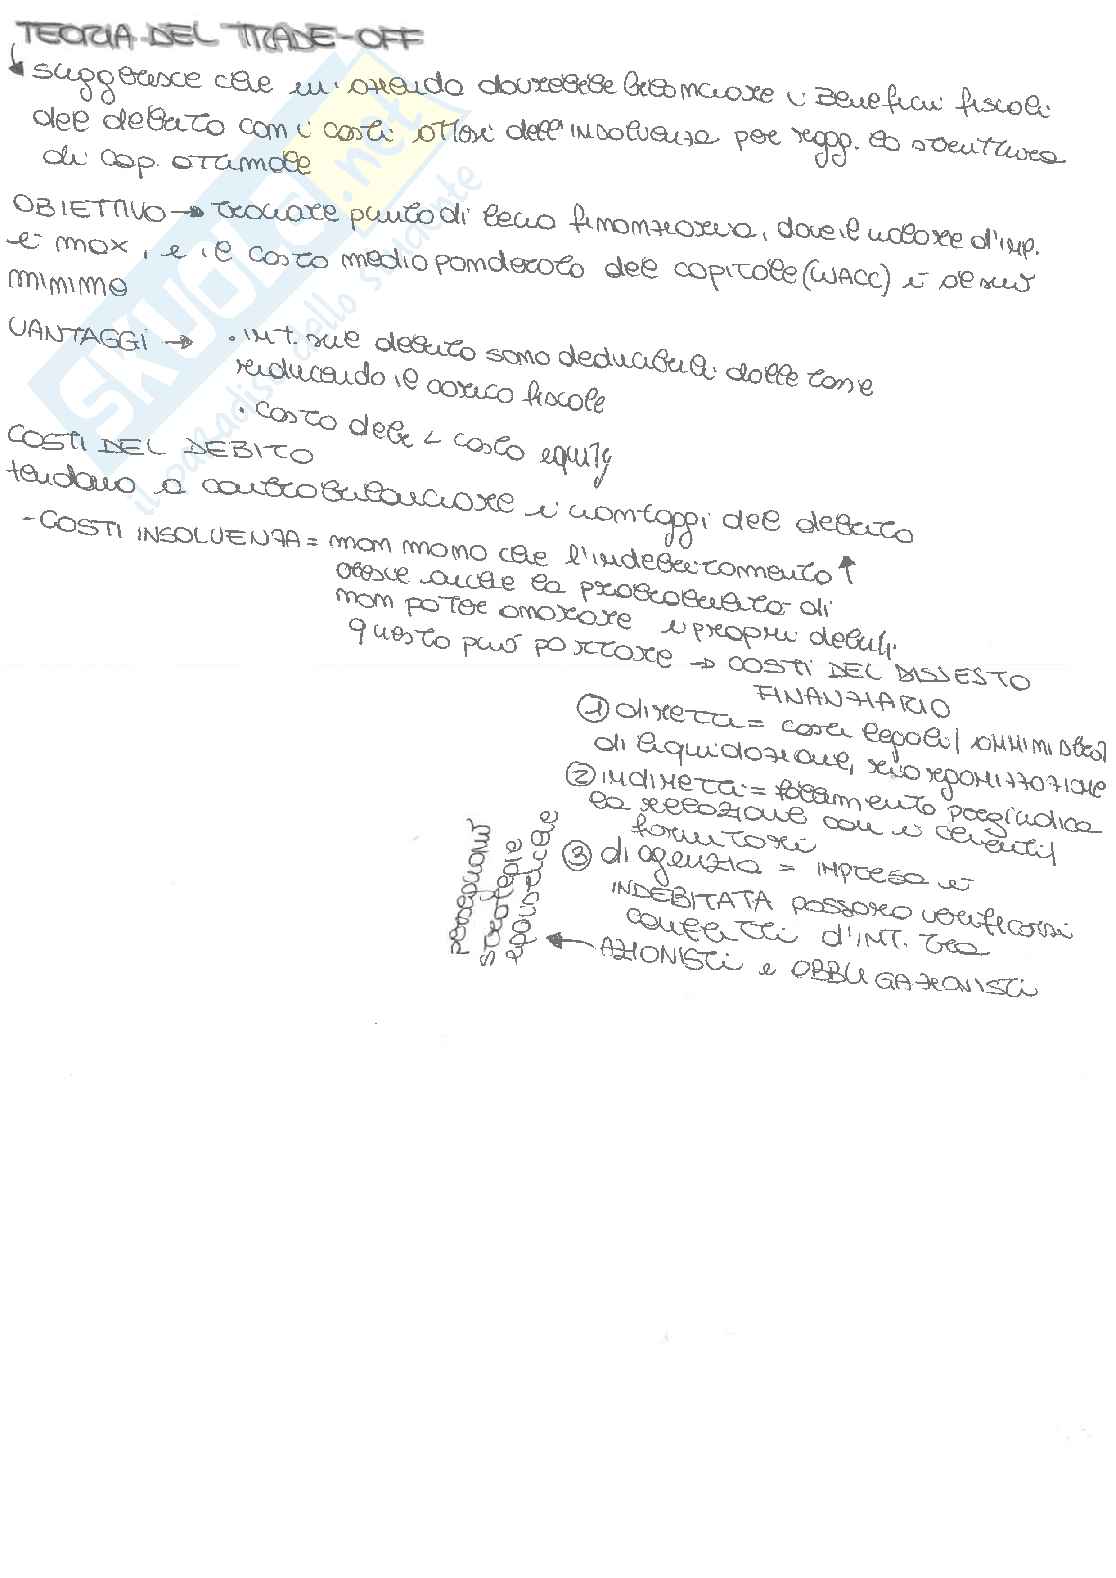 TEORIA DEL TRADE-OFF
suggerisce che un'azienda dovrebbe bilanciare i benefici fiscali
del debito con i costi attesi dell'insolvenza per ragg. la struttura
di cap. ottimale
OBIETTIVO → trovare punto di leva finanziaria, dove il valore d'imp.
è max, e il costo medio ponderato del capitale (WACC) è al suo
minimo
VANTAGGI → • int. sul debito sono deducibili dalle tasse
riducendo il carico fiscale
• costo deb < costo equity
COSTI DEL DEBITO
tendono a controbilanciare i vantaggi del debito
- COSTI INSOLVENZA = man mano che l'indebitamento ↑
cresce anche la probabilità di
non poter onorare i propri debiti.
questo può portare → COSTI DEL DISSESTO
FINANZIARIO
① diretti = costi legali/amministrat
di liquidazione, riorganizzazione
② indiretti = fallimento pregiudica
la relazione con i clienti/
fornitori
③ di agenzia = impresa è
INDEBITATA possono verificarsi
conflitti d'INT. tra
← AZIONISTI e OBBLIGAZIONISTI
perseguono
strategie
egoistiche
SKUOLA.net
il paradiso dello studente